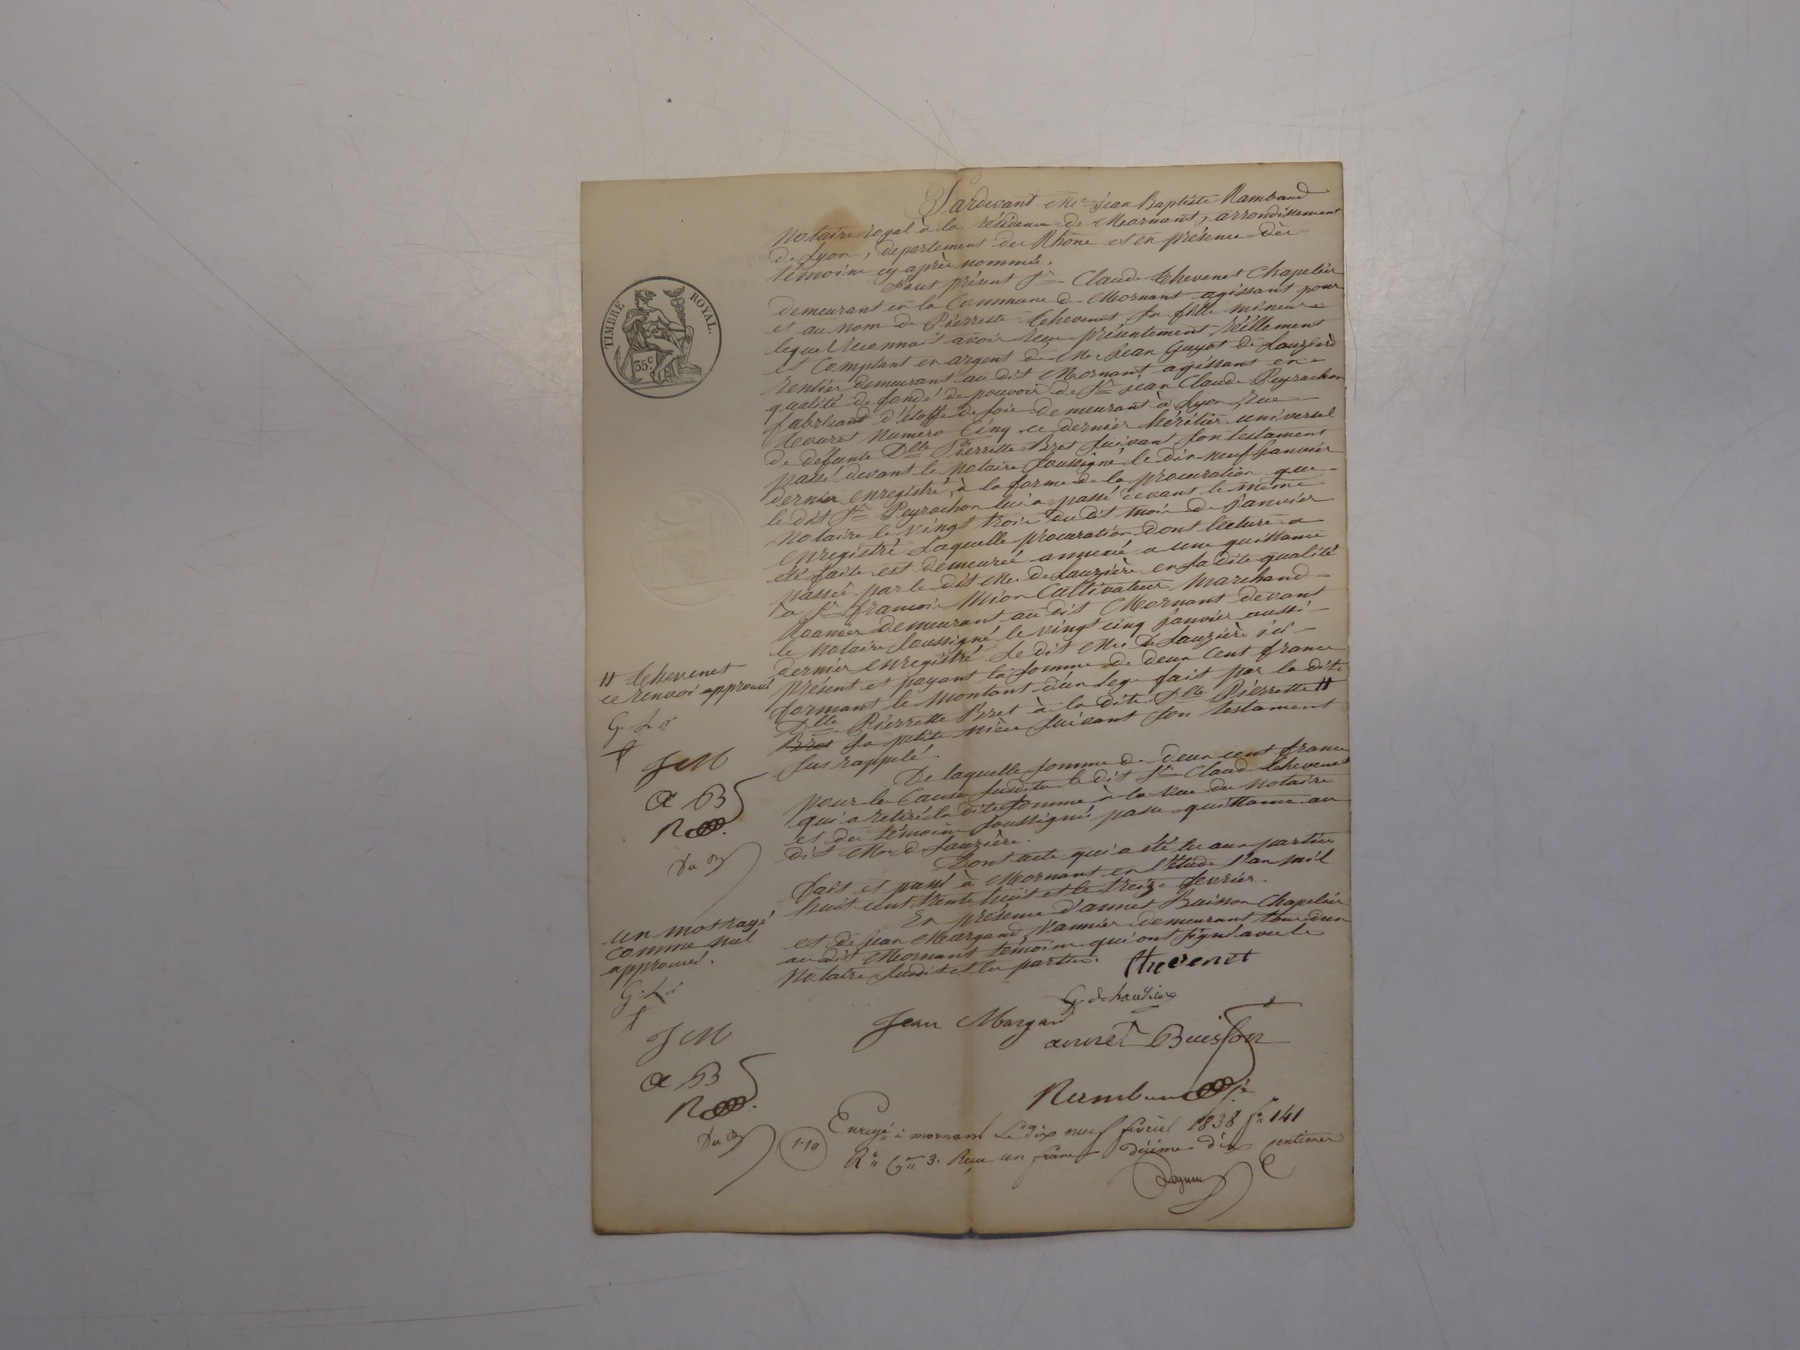 Pardevant Me Jean Baptiste Rambaud
Notaire royal à la résidence de Mornant, arrondissement
de Lyon, département du Rhône et en présence des
témoins cy après nommés.
Fut présent Sr Claude Thevenet Chapelier
demeurant en la Commune de Mornant agissant pour
et au nom de Pierrette Thevenet sa fille mineure
lequel reconnait avoir reçu présentement réellement
et Comptant en argent de Mr Jean Guyot de Lauzière
rentier demeurant au dit Mornant agissant en
qualité de fondé de pouvoir de Sr jean Claude Peyrachon
fabricant d'étoffe de soie demeurant à Lyon, rue
Numéro Cinq ce dernier héritier universel
de défunte Dlle Pierrette Bret suivant son testament
passé devant le notaire soussigné le dix neuf janvier
dernier enregistré, à la forme de la procuration que
le dit Sr Peyrachon lui a passé devant le même
notaire le vingt trois du dit mois de janvier
enregistré laquelle procuration dont lecture a
été faite est demeurée annexé a une quittance
passée par le dit Mr de Lauzière en sa dite qualité
à Sr francois Mion Cultivateur Marchand
demeurant au dit Mornant devant
le notaire soussigné le vingt cinq janvier aussi
dernier enregistré le dit Mr De Lauzière ici
présent et payant la somme de deux cent francs
formant le montant d'un legs fait par la dite
Dlle Pierrette Bret à la dite Dlle Pierrette #
Bret sa petite nièce suivant son testament
sus rappelé.
# thevenet
ce renvoi approuvé
G. L
J M
a B
R
De laquelle somme de deux cent francs
pour la Cause susdite le dit Sr Claude thevenet
qui a retiré la dite somme à la vue du notaire
et des témoins soussignés passe quittance au
dit Mr de Lauzière.
Dont acte qui a été lu aux parties
fait et passé à Mornant en l'étude l'an mil
huit cent trente huit et le treize fevrier.
En présence d'annet Buisson Chapelier
et de Jean Margand Vannier demeurant tous deux
au dit Mornant témoins qui ont signé avec le
notaire susdit et les parties.
un mot rayé
comme nul
approuvé.
G. L
J M
a B
R
thevenet
G. de Lauzière
Jean Margand
annet Buisson
Rambaud
Enregé à mornant le dix neuf février 1838 fo 141
Ro Ce 3. Reçu un franc décime dix centimes
1.10